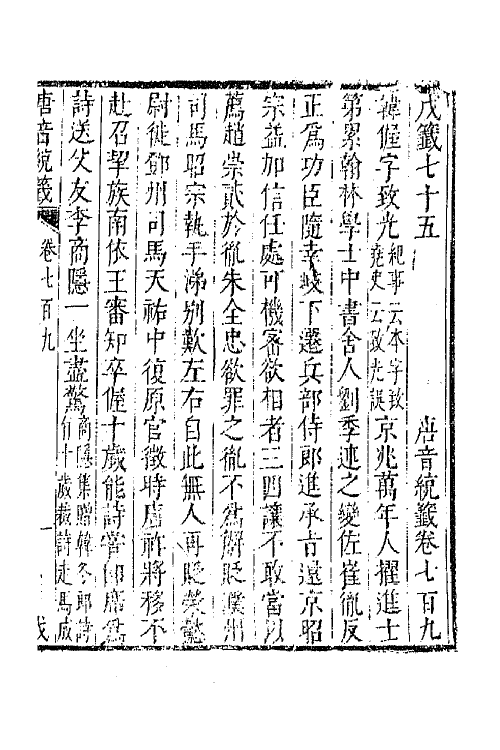 戊籤七十五　唐音統籤卷七百九
韓偓字致光紀事云本字致堯史云致光誤京兆萬年人擢進士
第累翰林學士中書舍人劉季述之變佐崔胤反
正爲功臣隨幸岐下遷兵部侍郎進承旨還京昭
宗益加信任處可機密欲相者三四讓不敢當以
薦趙崇貳於胤朱全忠欲罪之胤不爲解貶濮州
司馬昭宗執手涕別歎左右自此無人再貶榮懿
尉徙鄧州司馬天祐中復原官徵時唐祚將移不
赴召挈族南依王審知卒偓十歲能詩嘗卽席爲
詩送父友李商隱一坐盡驚商隱集贈韓冬郎詩有十歲裁詩走馬成
唐音統籤　卷七百九　一　戊